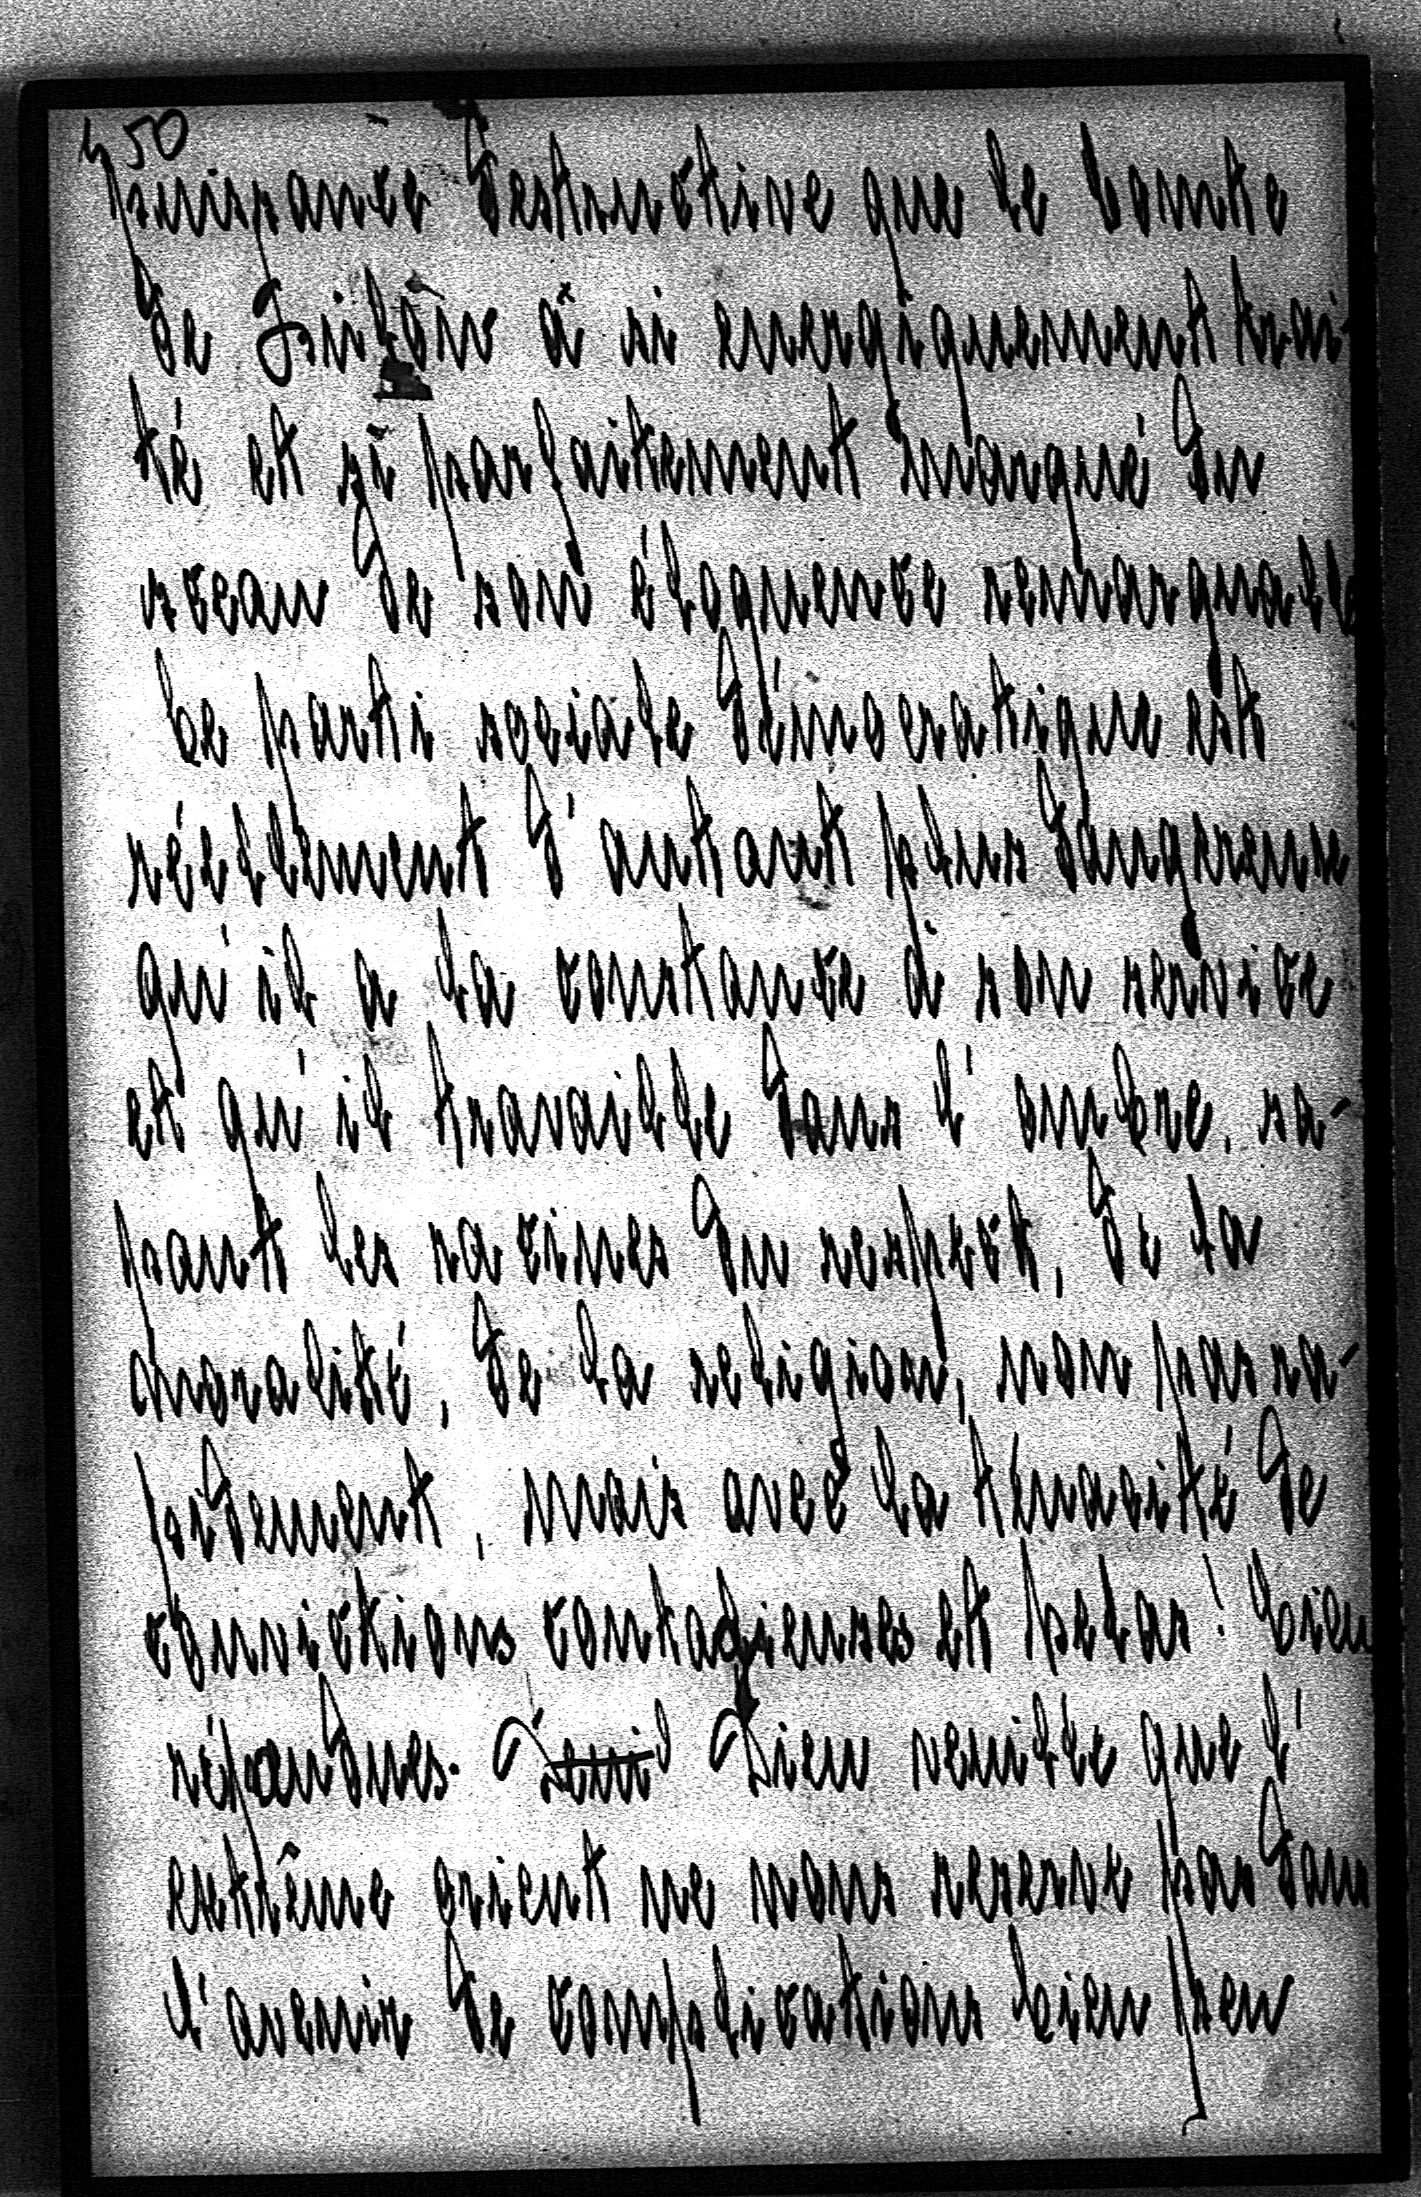 450
puissance destructive que le Comte
de Bülow a si energiquement trai-
té et si parfaitement marqué du
sceau de son éloquence remarquable
Le parti sociale démocratique est
réellement d'autant plus dangereuse
qu'il a la constance à son service
et qu'il travaille dans l'ombre, sa-
pant les racines du respect, de la
moralité, de la religion, non pas ra-
pidement, mais avec la ténacité de
convictions contagieuses et helas! bien
répandues. Dieu veuille que l'
extrême orient ne nous reserve pas dans
l'avenir de complications bien peu